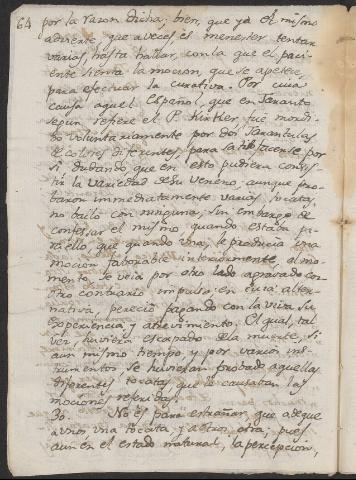 64 por la razon dicha; bien, que ya el mismo
advierte, que a veces es menester tentar
varios, hasta hallar, con la que el paci-
ente sienta la mocion, que se apetece
para efectuar la curativa. Por cuia
causa aquel Español, que en Taranto
segun refiere el P. Kirker, fue mordi-
do voluntariamente por dos Tarantulas
de colores diferentes, para satisfacerse por
si, dudando, que en esto pudiera consis-
tir la variedad de su veneno, aunque pro-
baron immediatamente varias tocatas,
no bailò con ninguna, sin embargo de
confesar el mismo, quando estaba pa-
ra ello, que quando una, le producia una
mocion faborable interiormente, al mo-
mento se veia por otro lado agravado con
otro contrario impulso, en cuia alter-
nativa, pereciò pagando con la vida, su
experiencia y atrevimiento. El qual, tal
vez, huviera escapado de la muerte, si
a un mismo tiempo, y por varios ins-
trumentos se huvieran probado aquellas
diferentes tocatas, que le causaban las
mociones referidas.
30. No es para estrañar, que adeque
a unos una tocata, y a otros, otra; pues
aun en el estado natural, la percepcion,